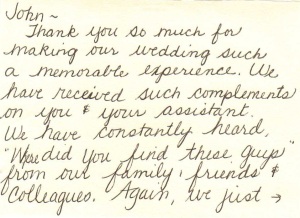 John ~
Thank you so much for
making our wedding such
a memorable experience. We
have received such complements
on you & your assistant.
We have constantly heard,
"Where did you find these guys"
from our family, friends &
colleagues. Again, we just →